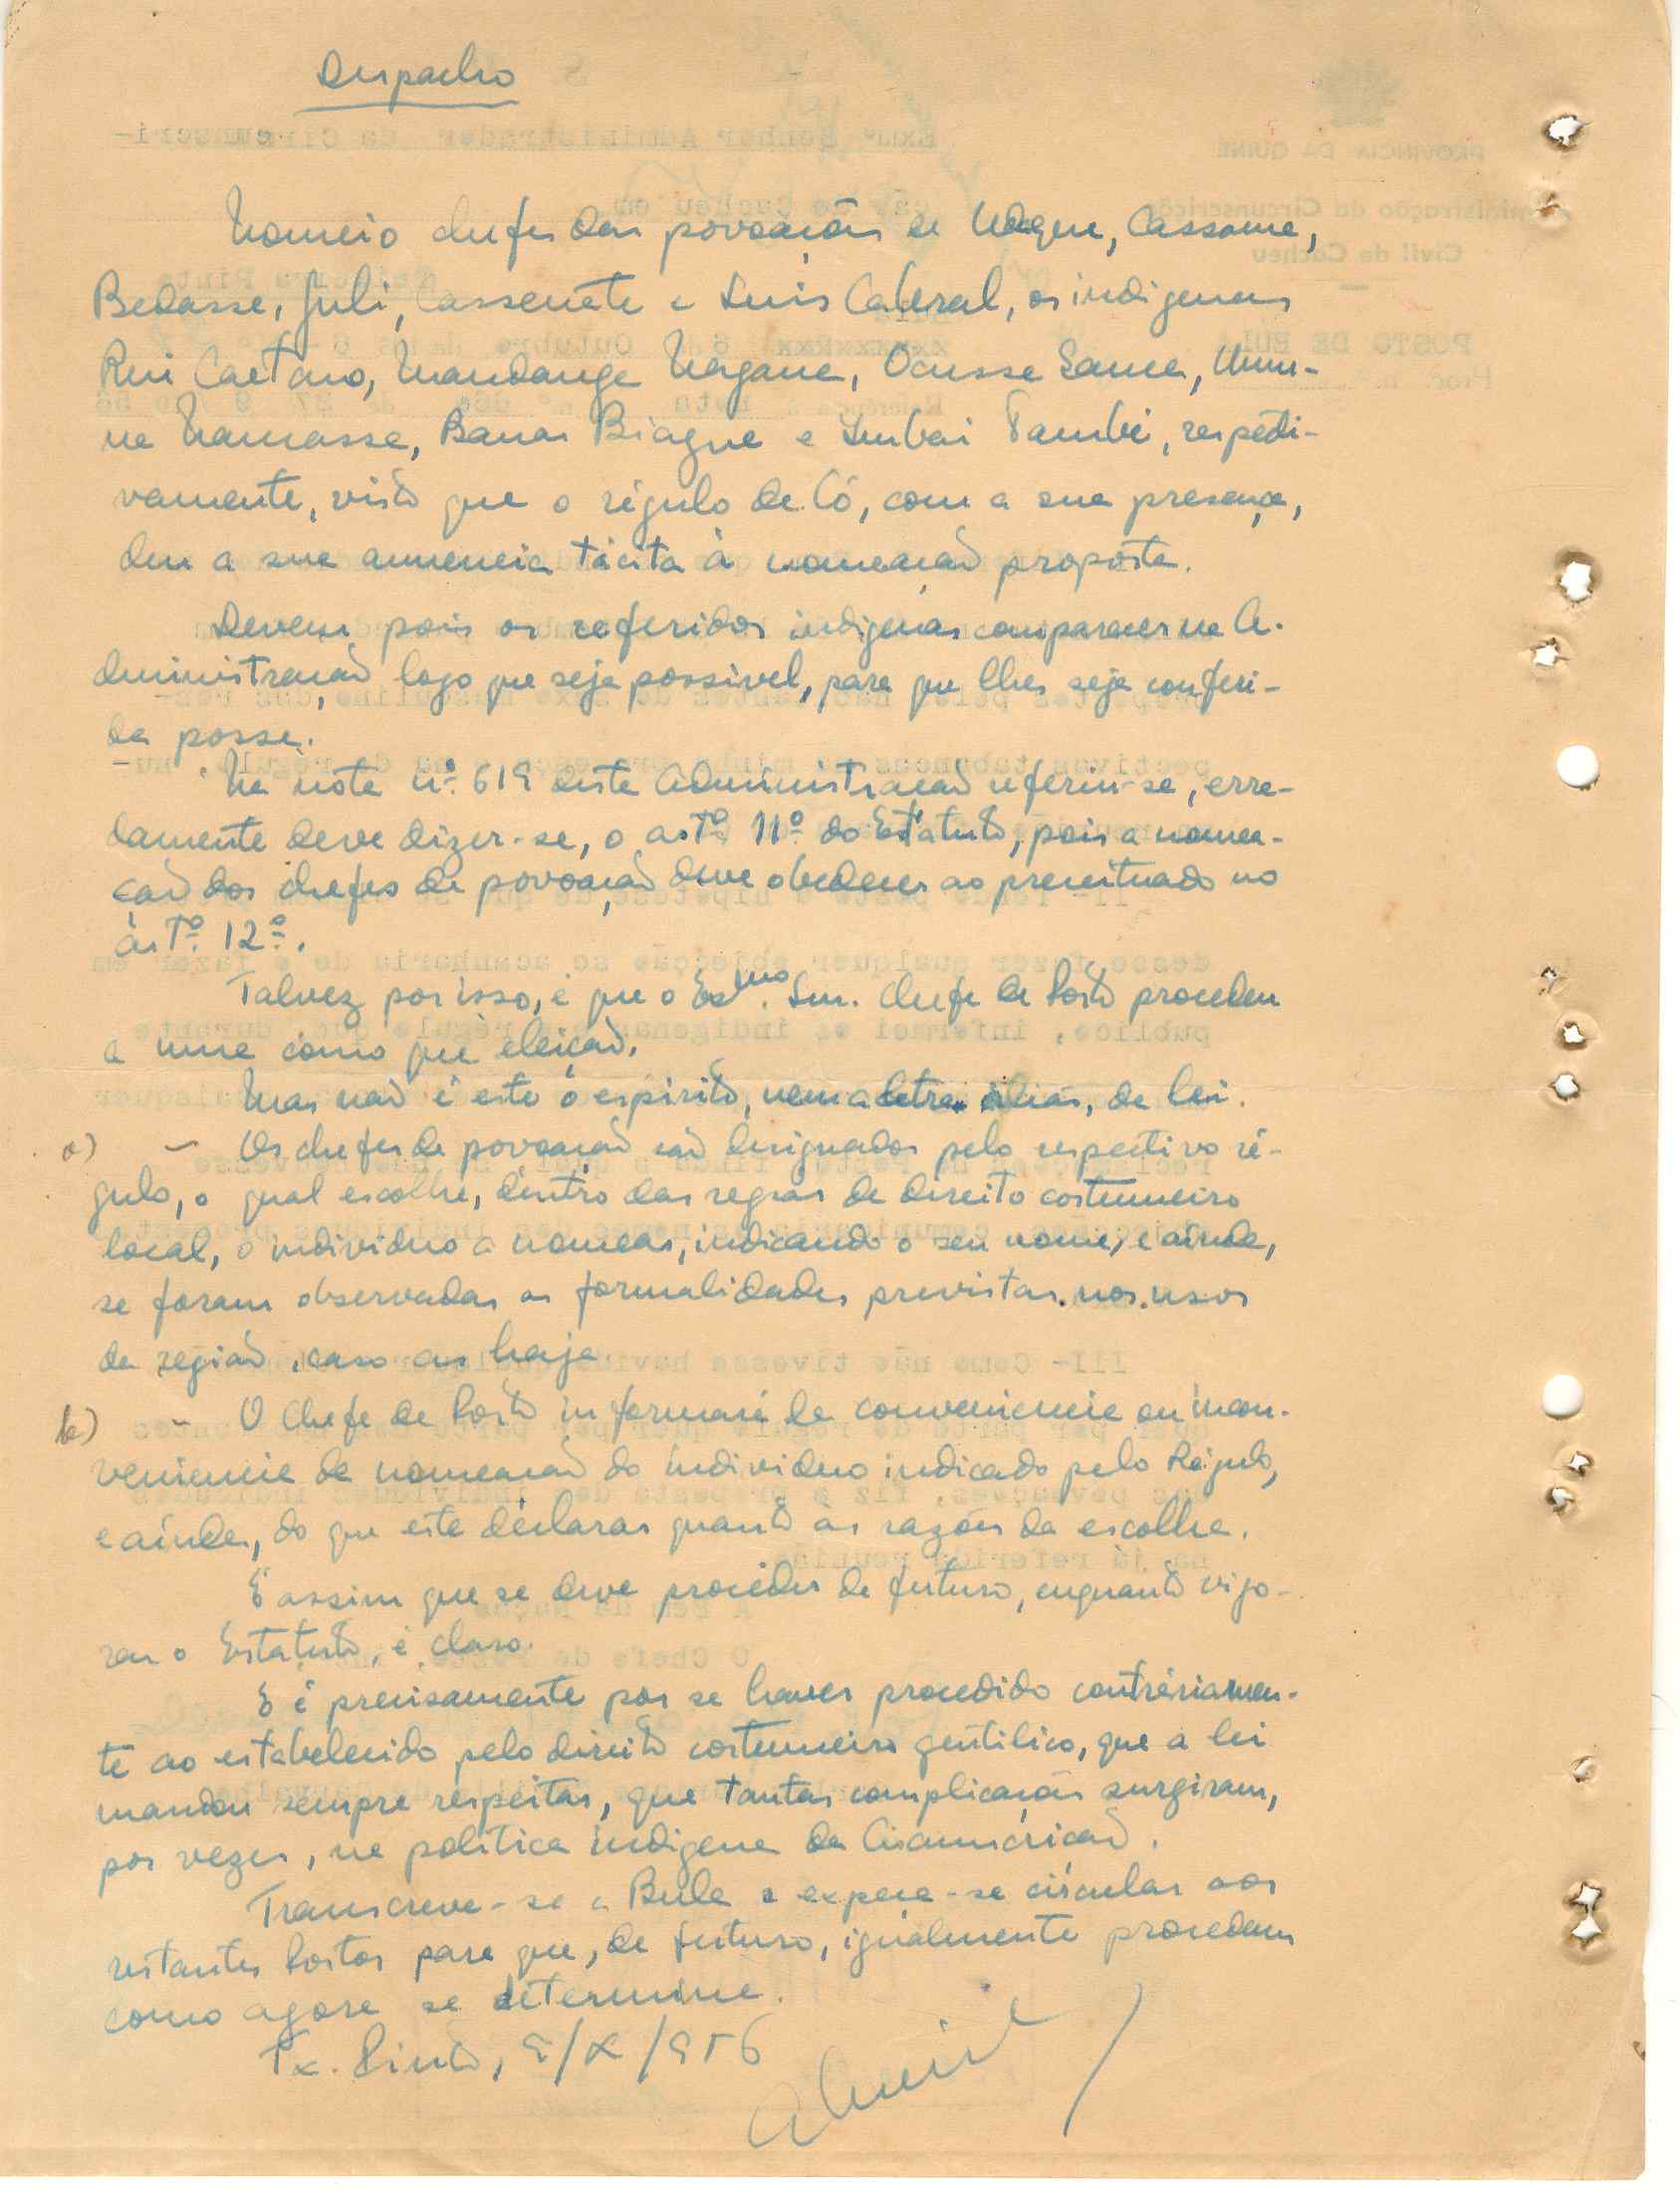 Despacho
Nomeio chefes das povoações de Ndegue, Cassame,
Bedasse, Juli, Cassenete e Luis Cabral, os indigenas
Rui Caetano, Mandange Nagane, Ocusse Same,
Namasse, Banar Biagne e Imbai Tambe, respecti-
vamente, visto que o régulo de Có, com a sua presença,
deu a sua anuencia tácita à nomeação proposta.
Devem pois os referidos indigenas comparecer na A-
dministração, logo que seja possivel, para que lhes seja conferi-
da posse.
Na nota nº. 619 desta Administração referiu-se, erra-
damente deve dizer-se, o artº. 11º do Estatuto, pois a nomea-
ção dos chefes de povoação deve obedecer ao preceituado no
artº. 12º.
Talvez por isso, é que o Exmo. Snr. Chefe de Posto procedeu
a uma como que eleição.
Mas não é este o espirito, nem a letra aliás, da lei.
a) - Os chefes de povoação são designados pelo respectivo ré-
gulo, o qual escolhe, dentro das regras de direito costumeiro
local, o individuo a nomear, indicando o seu nome, e ainda,
se foram observadas as formalidades previstas nos usos
da região, caso as haja.
b) - O Chefe de Posto informará da conveniencia ou incon-
veniencia da nomeação do individuo indicado pelo Régulo,
e ainda, do que este declarar quanto às razões da escolha.
É assim que se deve proceder de futuro, enquanto vigo-
rar o Estatuto, é claro.
E é precisamente por se haver procedido contráriamen-
te ao estabelecido pelo direito costumeiro gentilico, que a lei
mandou sempre respeitar, que tantas complicações surgiram,
por vezes, na politica indigena da Circunscrição.
Transcreve-se a Bula e expeça-se circular aos
restantes Postos para que, de futuro, igualmente procedam
como agora se determina.
Tx. Pinto, 9/X/956